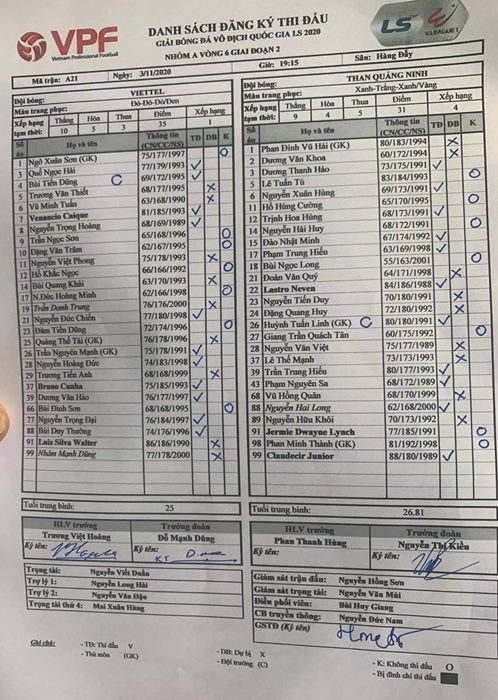 VPF
Vietnam Professional Football
DANH SÁCH ĐĂNG KÝ THI ĐẤU
GIẢI BÓNG ĐÁ VÔ ĐỊCH QUỐC GIA LS 2020
NHÓM A VÒNG 6 GIAI ĐOẠN 2
LS
V.LEAGUE 1
Mã trận: A21
Ngày: 3/11/2020
Giờ: 19:15
Sân: Hàng Đẫy
Đội bóng: VIETTEL
Màu trang phục: Đỏ-Đỏ-Đỏ/Đen
Xếp hạng tạm thời: Thắng Hòa Thua Điểm Xếp hạng
10 5 3 35
Số áo Họ và tên Thông tin (CN/CC/NS) TĐ DB K
1 Ngô Xuân Sơn (GK) 75/177/1997
3 Quế Ngọc Hải 77/179/1993 V
4 Bùi Tiến Dũng C 69/172/1995 V
5 Trương Văn Thiết 68/177/1995 X
6 Vũ Minh Tuấn 63/168/1990 X
7 Venancio Caique 81/185/1993 V
8 Nguyễn Trọng Hoàng 68/169/1989 V
9 Trần Ngọc Sơn 65/168/1996 O
10 Đặng Văn Trâm 62/167/1995 O
11 Nguyễn Việt Phong 75/178/1993 X
12 Hồ Khắc Ngọc 66/166/1992 O
14 Bùi Quang Khải 63/170/1993 X
17 N.Đức Hoàng Minh 62/166/1998 O
19 Trần Danh Trung 76/176/2000 X
21 Nguyễn Đức Chiến 77/180/1998 V
23 Đàm Tiến Dũng 72/174/1996 O
25 Quàng Thế Tài (GK) 75/175/1996 X
26 Trần Nguyên Mạnh (GK) 75/178/1991 V
28 Nguyễn Hoàng Đức 74/183/1998 V
29 Trương Tiến Anh 68/168/1999 X
37 Bruno Cunha 75/185/1993 V
39 Dương Văn Hào 76/177/1997 V
66 Bùi Đình Sơn 68/168/1995 O
77 Nguyễn Trọng Đại 76/184/1997 V
88 Bùi Duy Thường 74/176/1996 V
91 Luiz Silva Walter 86/186/1990 X
99 Nhâm Mạnh Dũng 77/178/2000 X
Tuổi trung bình: 25
HLV trưởng Trưởng đoàn
Trương Việt Hoàng Đỗ Mạnh Dũng
Ký tên: Ký tên:
Trọng tài: Nguyễn Viết Duẩn
Trợ lý 1: Nguyễn Long Hải
Trợ lý 2: Nguyễn Văn Hậu
Trọng tài thứ 4: Mai Xuân Hùng
Đội bóng: THAN QUẢNG NINH
Màu trang phục: Xanh-Trắng-Xanh/Vàng
Xếp hạng tạm thời: Thắng Hòa Thua Điểm Xếp hạng
9 4 5 31 4
Số áo Họ và tên Thông tin (CN/CC/NS) TĐ DB K
1 Phan Đình Vũ Hải (GK) 80/183/1994 X
2 Dương Văn Khoa 60/172/1994 X
3 Dương Thanh Hào 73/175/1991 V
5 Lê Tuấn Tú 83/184/1993 O
6 Nguyễn Xuân Hùng 69/173/1991 V
11 Hồ Hùng Cường 65/170/1995 O
12 Trịnh Hoa Hùng 68/173/1991 V
14 Nguyễn Hải Huy 68/172/1991 O
15 Đào Nhật Minh 67/174/1992 V
17 Phạm Trung Hiếu 63/169/1998 V
18 Bùi Ngọc Long 55/163/2001 O
21 Đoàn Văn Quý 64/171/1998 X
22 Lastro Neven 84/186/1988 V
23 Nguyễn Tiến Duy 70/180/1991 X
24 Đặng Quang Huy 72/180/1992 X
26 Huỳnh Tuấn Linh (GK) C 80/180/1991 V
27 Giang Trần Quách Tân 60/175/1992 O
28 Nguyễn Văn Việt 75/177/1989 X
37 Lê Thế Mạnh 73/173/1993 X
39 Trần Trung Hiếu 80/177/1993 V
43 Phạm Nguyên Sa 68/172/1989 V
68 Vũ Hồng Quân 68/170/1999 X
88 Nguyễn Hai Long 62/168/2000 V
89 Nguyễn Hữu Khôi 70/173/1992 X
91 Jermie Dwayne Lynch 77/185/1991 O
98 Phan Minh Thành (GK) 81/192/1998 O
99 Claudecir Junior 88/180/1989 V
Tuổi trung bình: 26.81
HLV trưởng Trưởng đoàn
Phan Thanh Hùng Nguyễn Thị Kiều
Ký tên: Ký tên:
Giám sát trận đấu: Nguyễn Hồng Sơn
Giám sát trọng tài: Nguyễn Văn Mùi
Điều phối viên: Bùi Huy Giang
CB truyền thông: Nguyễn Đức Nam
GSTĐ (Ký tên)
Ghi chú: - TĐ: Thi đấu V - DB: Dự bị X - K: Không thi đấu O
- Thủ môn (GK) - Đội trưởng (C) - Bị đình chỉ thi đấu